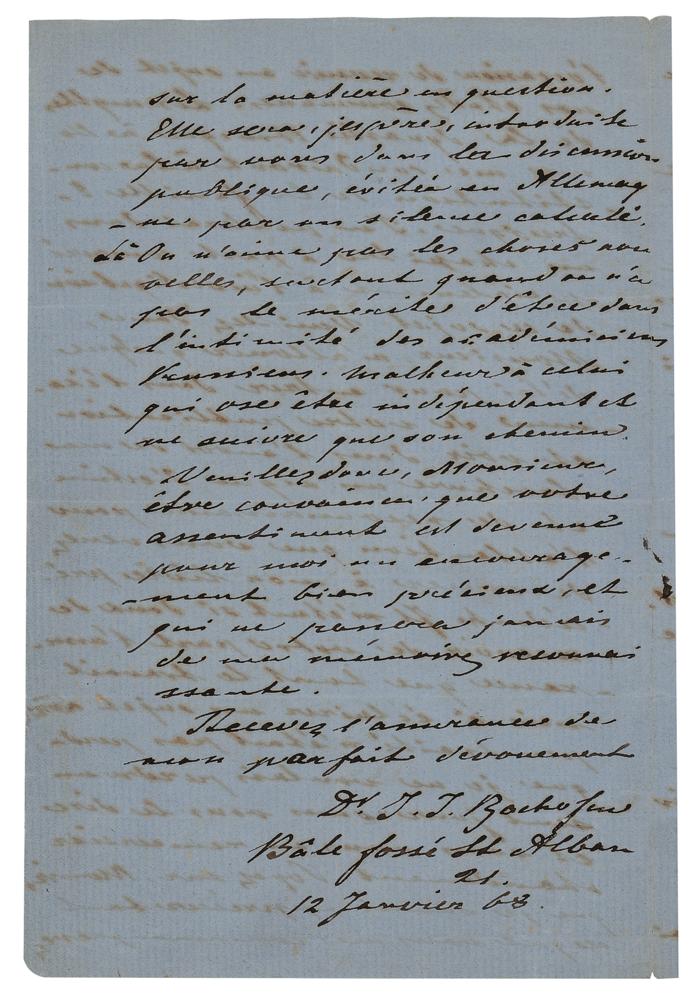 sur la matière en question.
Elle sera, j'espère, introduite
par vous dans la discussion
publique, évitée en Allemag
-ne par un silence calculé.
Là On n'aime pas les choses nou
velles, surtout quand on n'a
pas le mérite d'être dans
l'intimité des académiciens
Prussiens. Malheur à celui
qui ose être indépendant et
ne suivre que son chemin.
Veuillez donc, Monsieur,
être convaincu que votre
assentiment est devenu
pour moi un encourage-
-ment bien précieux, et
qui ne passera jamais
de ma mémoire reconnai
ssante.
Recevez l'assurance de
mon parfait dévouement
Dr. J. J. Bachofen
Bâle fossé St Alban
21.
12 Janvier 63.